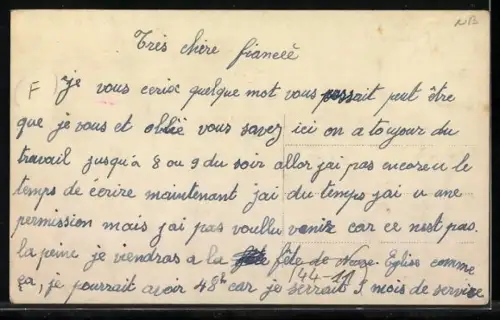 NB
Très chère fianceé
(F) je vous ecrix quelque mot vous pessait peut être
que je vous et oblié vous savez ici on a toujour du
travail jusqu'a 8 ou 9 du soir allor j'ai pas encore u le
temps de écrire maintenant j'ai du temps j'ai u une
permission mais j'ai pas voullu venir car ce n'est pas
la peine je viendras a la fête de Eglise comme
ça, je pourrait avoir 48h car je serrait 9 mois de service
(44-11)